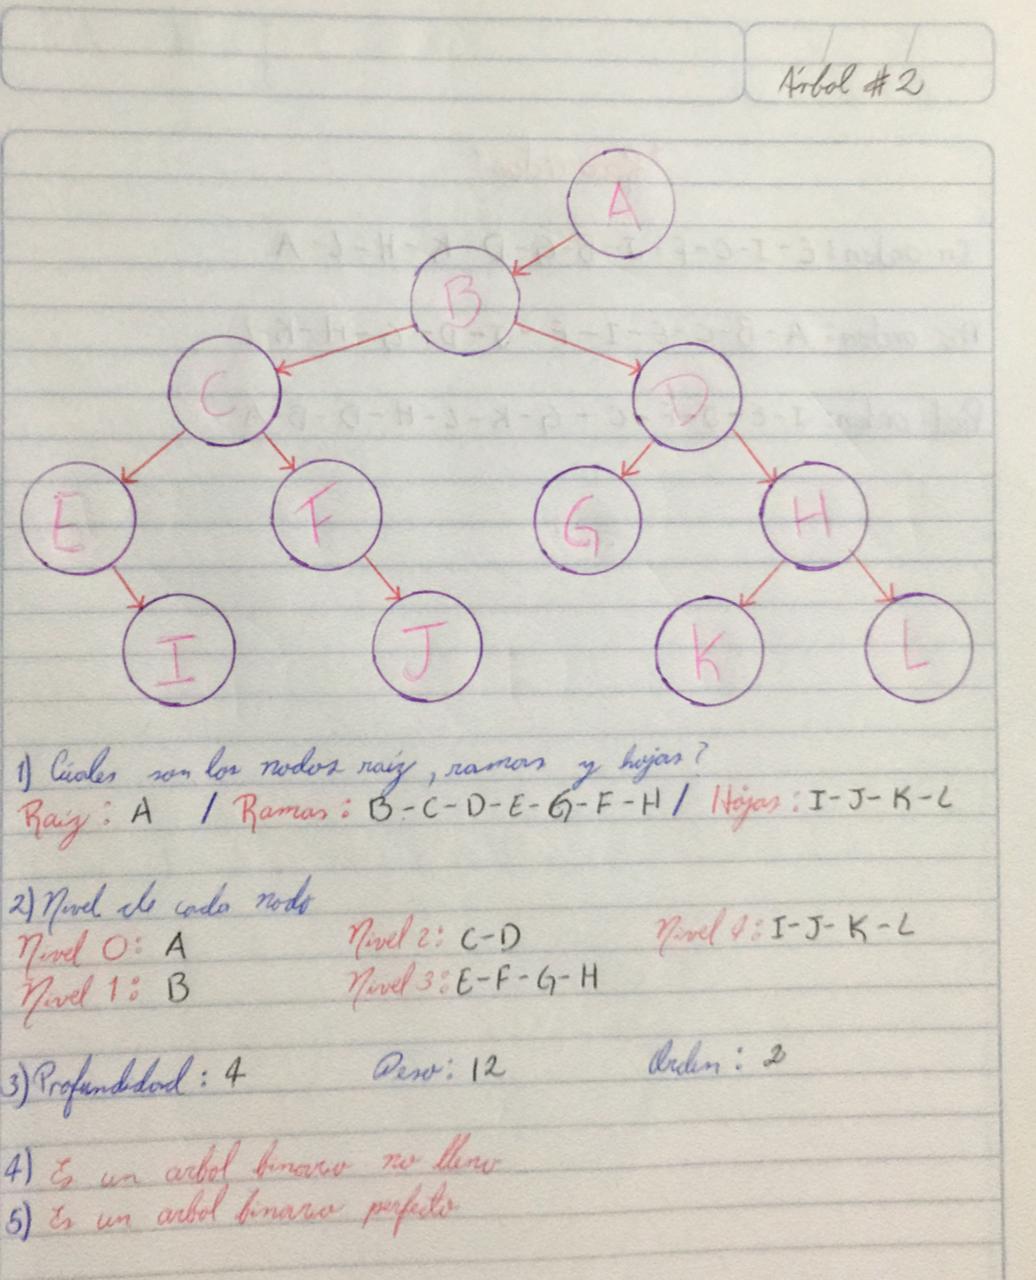 Árbol #2
A
B
C D
E F G H
I J K L
1) Cúales son los nodos raíz, ramas y hojas?
Raíz: A / Ramas: B-C-D-E-G-F-H / Hojas: I-J-K-L
2) Nivel de cada nodo
Nivel 0: A Nivel 2: C-D Nivel 4: I-J-K-L
Nivel 1: B Nivel 3: E-F-G-H
3) Profundidad: 4 Peso: 12 Orden: 2
4) Es un arbol binario no lleno
5) Es un arbol binario perfecto